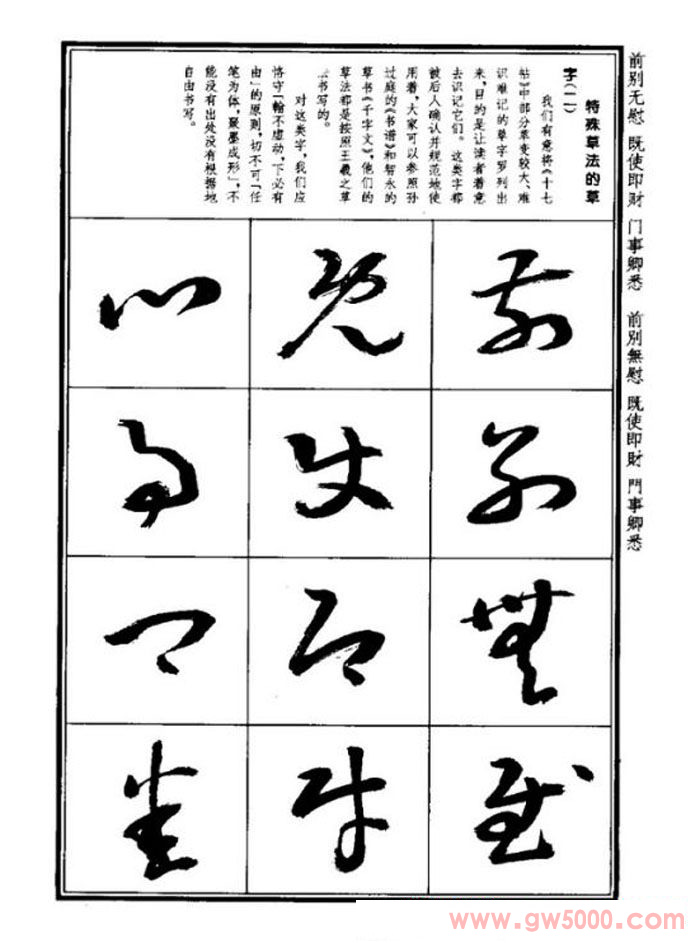 前别无慰 既使即财 门事卿悉 前別無慰 既使即財 門事卿悉
特殊草法的草
字(二)
我们有意将《十七
帖》中部分草变较大、难
识难记的草字罗列出
来,目的是让读者着意
去识记它们。这类字都
被后人确认并规范地使
用着,大家可以参照孙
过庭的《书谱》和智永的
草书《千字文》,他们的
草法都是按照王羲之草
法书写的。
对这类字,我们应
恪守「翰不虚动,下必有
由」的原则,切不可「任
笔为体,聚墨成形」,不
能没有出处没有根据地
自由书写。
前別無慰
既使即財
門事卿悉
www.gw5000.com